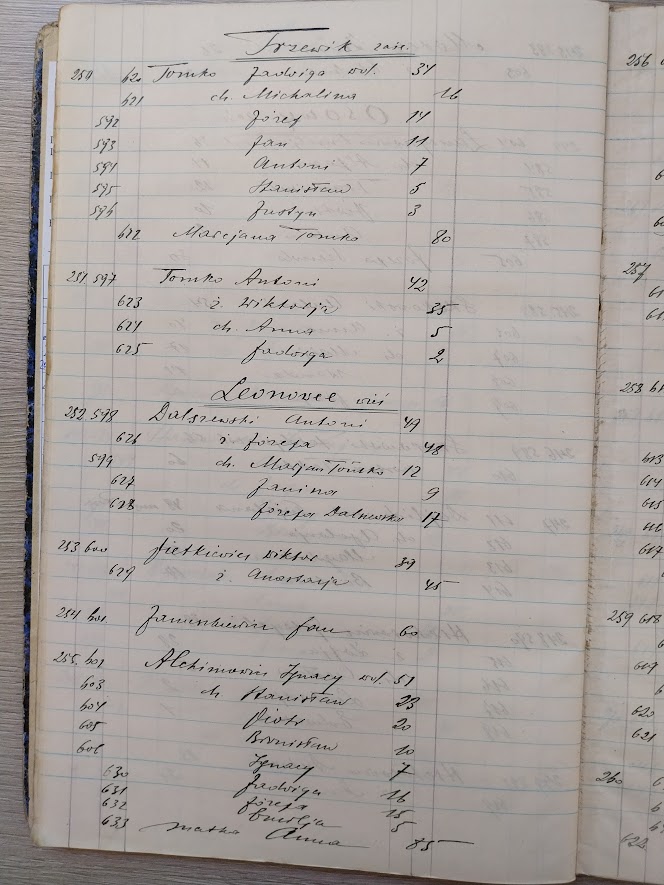 Trzewik zaśc.
250 620 Tomko Jadwiga wd. 34
621 ch. Michalina 16
592 Józef 14
593 Jan 11
594 Antoni 7
595 Stanisław 5
596 Justyn 3
622 Marcjana Tomko 80
251. 597 Tomko Antoni 42
623 ż. Wiktorja 35
624 ch. Anna 5
625 Jadwiga 2
Leonowce wieś
252. 598 Dalszewski Antoni 49
626 ż Józefa 48
599 ch. Marjan Tomko 12
627 Janina 9
628 Józefa 17
253 600 Wiktor 39
629 ż. Anastazja 45
254 601 Januszkiewicz Jan 60
255. 602 Alchimowicz Ignacy wd. 51
603 ch Stanisław 23
604 Piotr 20
605 Bronisław 10
606 Ignacy 7
630 Jadwiga 16
631 Józefa 15
632 Emilja 5
633 matka Anna 85
256
257
258
613
614
615
616
617
259 618
619
620
621
260